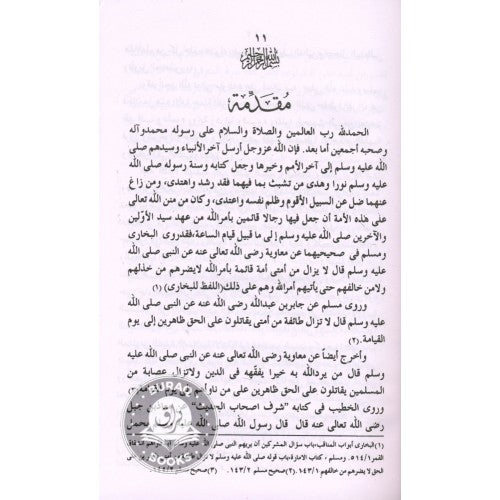 ١١
بسم الله الرحمن الرحيم
مُقَدِّمة
الحمدلله رب العالمين والصلاة والسلام على رسوله محمدوآله
وصحبه أجمعين أما بعد. فإن الله عزوجل أرسل آخرالأنبياء وسيدهم صلى
الله عليه وسلم إلى آخرالأمم وخيرها وجعل كتابه وسنة رسوله صلى الله
عليه وسلم نورا وهدى من تشبث بما فيهما فقد رشد واهتدى، ومن زاغ
عنهما ضل عن السبيل الأقوم وظلم نفسه واعتدى، وكان من منن الله تعالى
على هذه الأمة أن جعل فيها رجالا قائمين بأمرالله من عهد سيد الأولين
والآخرين صلى الله عليه وسلم إلى ما قبيل قيام الساعة،فقدروى البخارى
ومسلم فى صحيحيهما عن معاوية رضى الله تعالى عنه عن النبى صلى الله
عليه وسلم قال لا يزال من أمتى أمة قائمة بأمرالله لايضرهم من خذلهم
ولامن خالفهم حتى يأتيهم أمرالله وهم على ذلك(اللفظ للبخارى) (١)
وروى مسلم عن جابربن عبدالله رضى الله تعالى عنه عن النبى صلى الله
عليه وسلم قال لا تزال طائفة من أمتى يقاتلون على الحق ظاهرين إلى يوم
القيامة.(٢)
وأخرج أيضاً عن معاوية رضى الله تعالى عنه عن النبى صلى الله عليه
وسلم قال من يردالله به خيرا يفقّهه فى الدين ولاتزال عصابة من
المسلمين يقاتلون على الحق ظاهرين على من ناوأهم إلى يوم
وروى الخطيب فى كتابه "شرف اصحاب الحديث" جبل
رضى الله تعالى عنه قال قال رسول الله صلى الله يحمل
(١)البخارى أبواب المناقب،باب سؤال المشركين أن يريهم النبى صلى الله
القمر٥١٤/١ ومسلم ، كتاب الامارة،باب قوله صلى الله عليه وسلم
الحق لا يضرهم من خالفهم ١٤٣/٢ (٢)صحيح مسلم ١٤٣/٢ (٣)صحيح
SURAQ
BOOKS